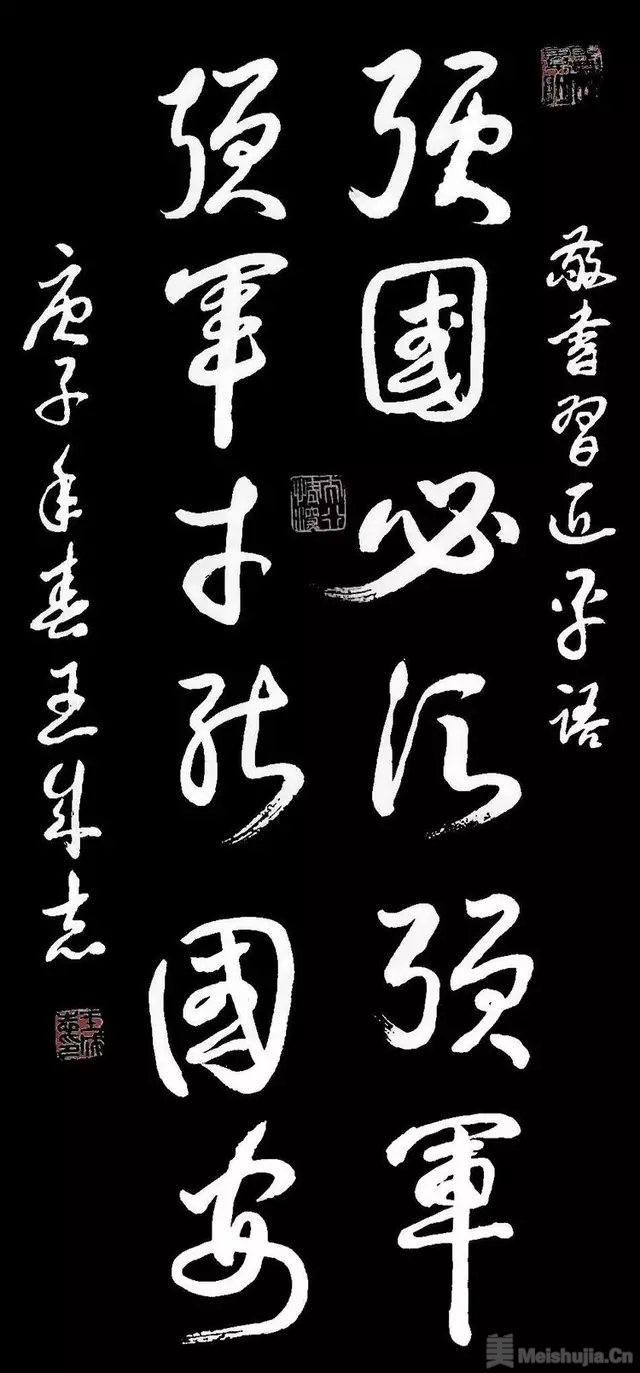 敬書習近平語
强國必須强軍
强軍才能國安
庚子年春王成志
美 Meishujia.Cn